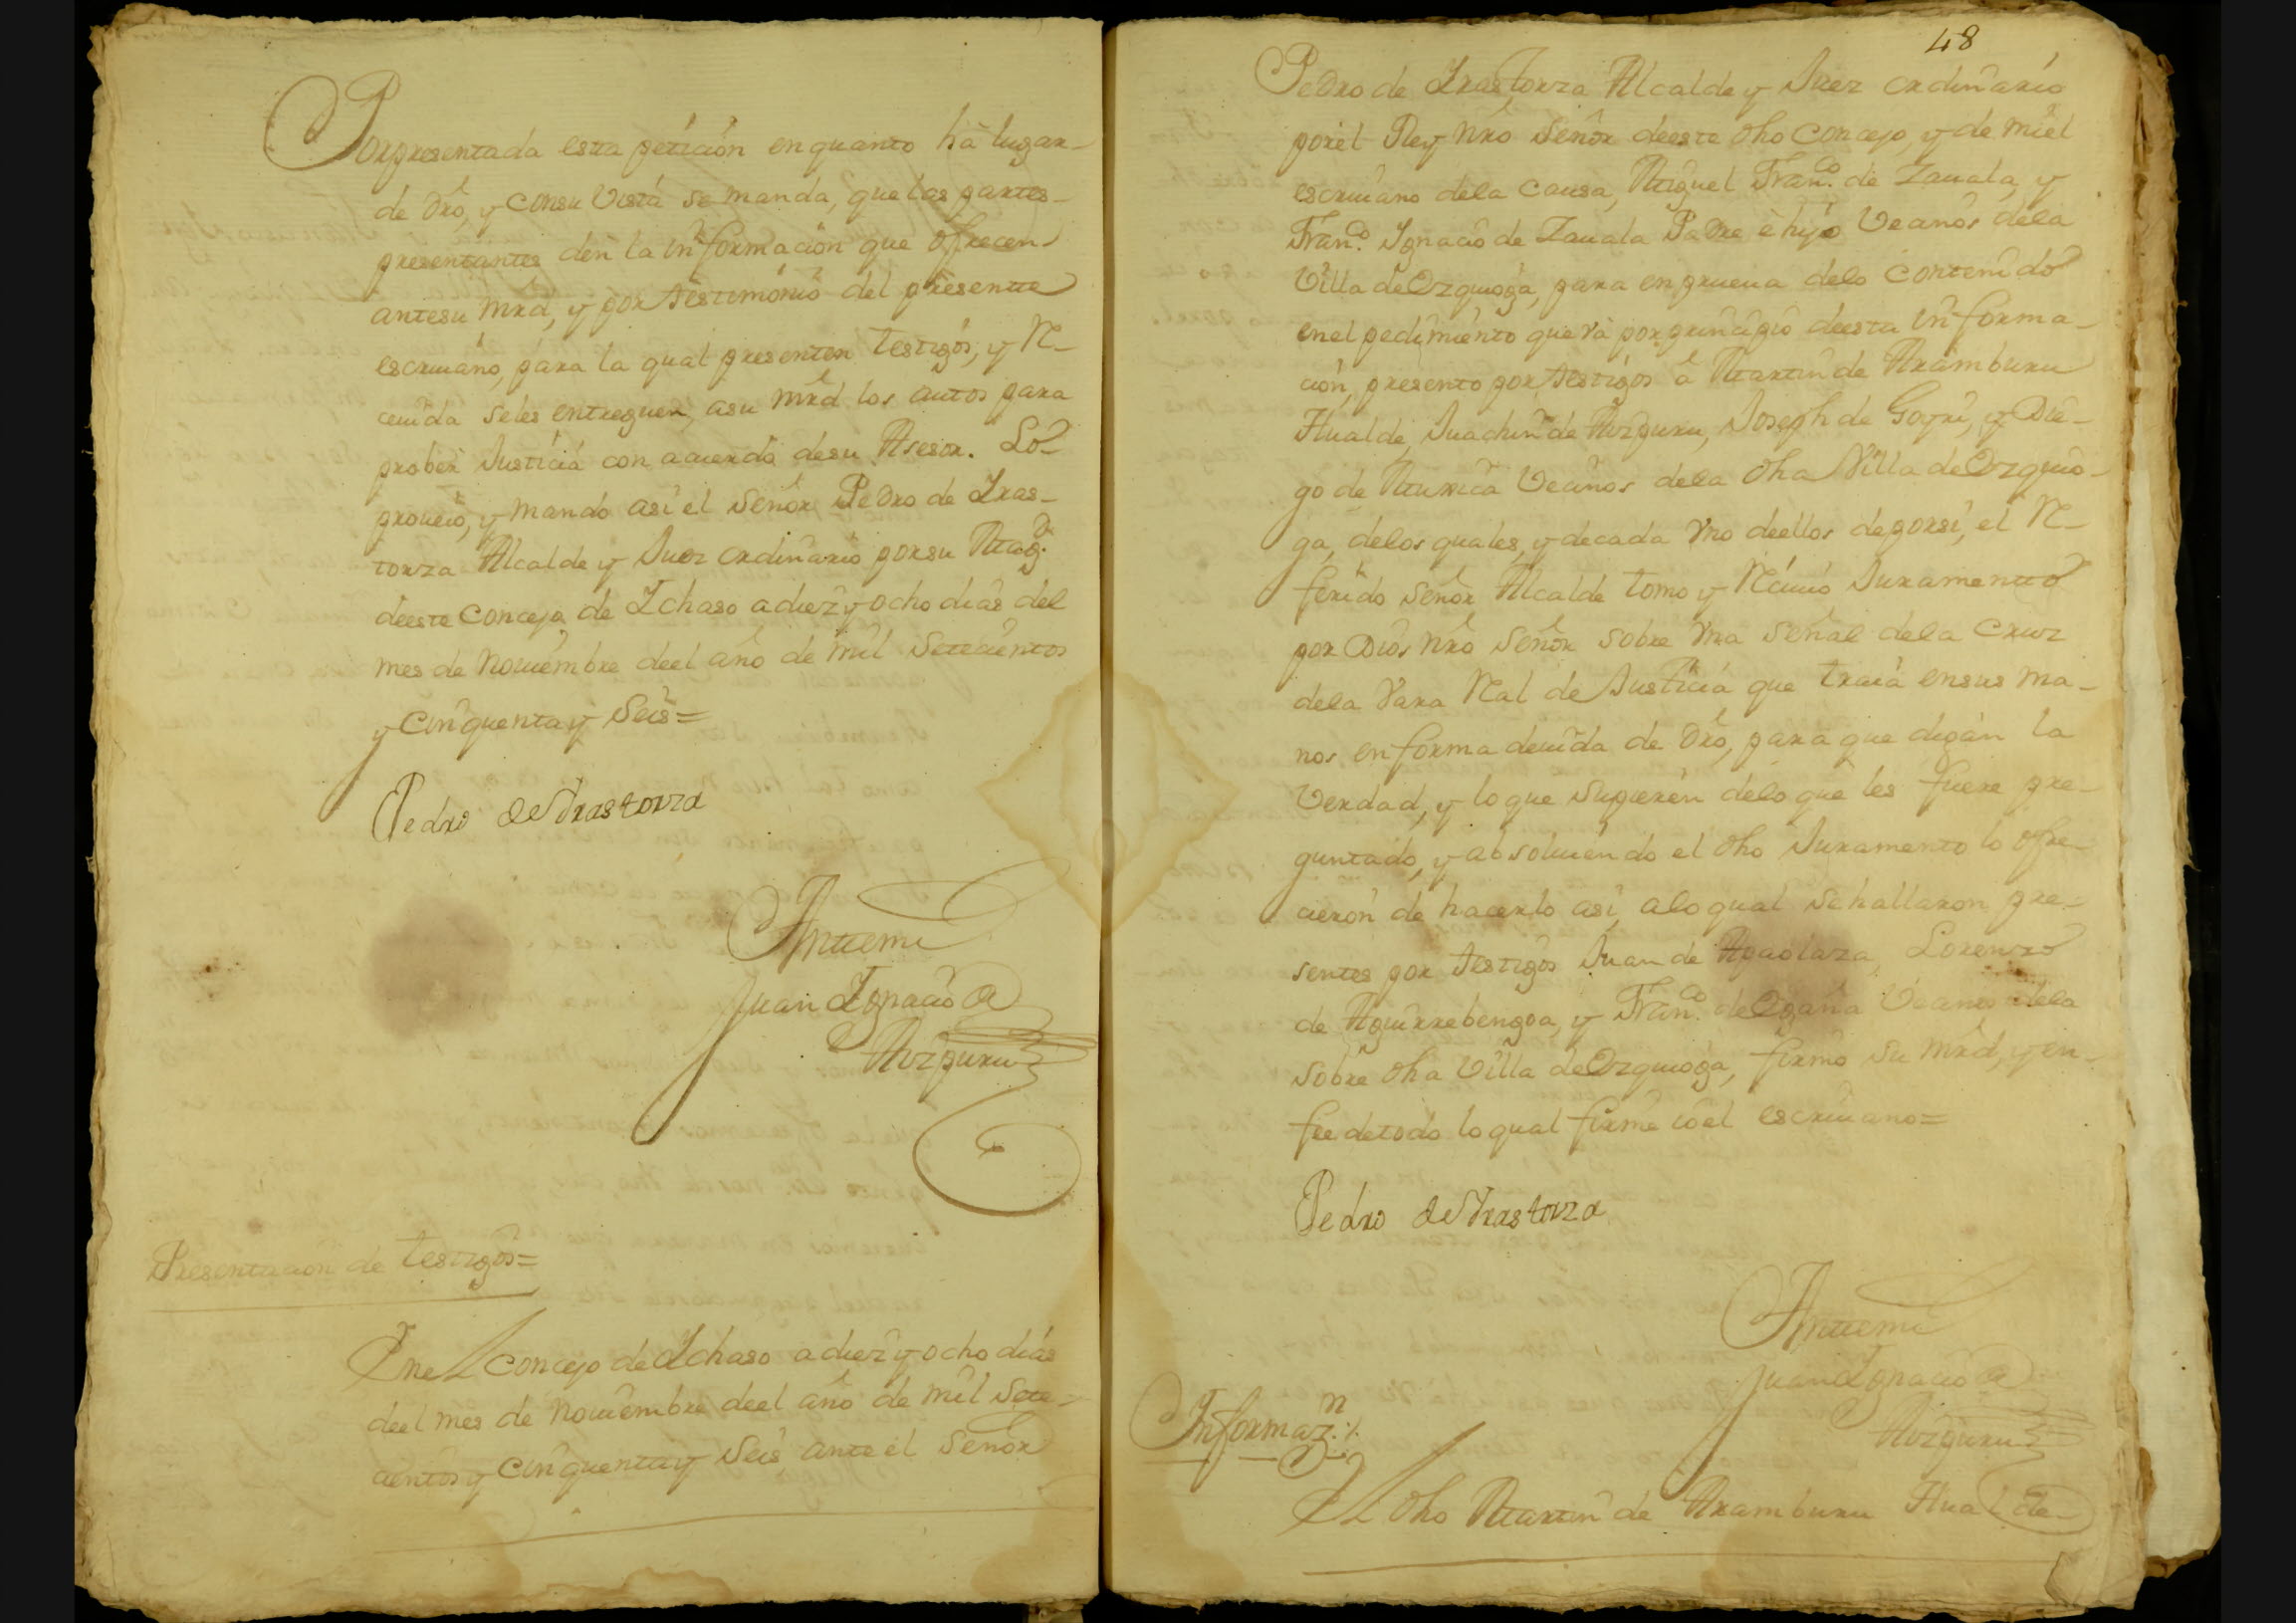 Por presentada esta petición en quanto há lugar
de dro, y con su vista se manda, que las partes
presentantes den la información que ofrecen
ante su mrd, y por testimonio del presente
escriuano, para la qual presenten testigos, y re-
ceuida se les entreguen, a su mrd los autos para
probeer Justicia con acuerdo de su Asesor. Lo
proueió, y mandó así el Señor Pedro de Yras-
torza Alcalde y Juez ordinario por su Magd.
de este concejo de Ychaso a diez y ocho días del
mes de Nouiembre de el año de mil setecientos
y cinquenta y seis=
Pedro de Yrastorza
Ante mi
Juan Ignacio de
Aizpuru
Presentación de testigos=
En el concejo de Ychaso a diez y ocho días
de el mes de Nouiembre de el año de mil sete-
cientos y cinquenta y seis, ante el Señor
48
Pedro de Yrastorza Alcalde y Juez ordinario
por el Rey nro Señor de este dho concejo, y de mi el
escriuano de la causa, Miguel Franco. de Zauala, y
Franco. Ignacio de Zauala Padre é hijo vecinos de la
Villa de Ezquioga, para en prueua de lo contenido
en el pedimiento que va por principio de esta informa-
ción, presento por testigos á Martin de Aramburu
Hualde, Juachin de Aizpuru, Joseph de Goyri, y Die-
go de Muxica vecinos de la dha Villa de Ezquio-
ga, de los quales, y de cada vno de ellos de por sí, el re-
ferido Señor Alcalde tomo y reciuió Juramento
por Dios nro Señor sobre vna señal de la cruz
de la vara real de Justicia que traía en sus ma-
nos en forma deuida de dro, para que digan la
verdad, y lo que supieren de lo que les fuere pre-
guntado, y absoluiendo el dho Juramento lo ofre-
cieron de hacerlo así, a lo qual se hallaron pre-
sentes por testigos Juan de Apaolaza, Lorenzo
de Aguirrebengoa, y Franco. de Egaña vecinos de la
sobre dha Villa de Ezquioga, firmó su mrd, y en
fee de todo lo qual firmé io el escriuano=
Pedro de Yrastorza
Ante mi
Juan Ignacio de
Aizpuru
Informazn.
El dho Martin de Aramburu Hualde